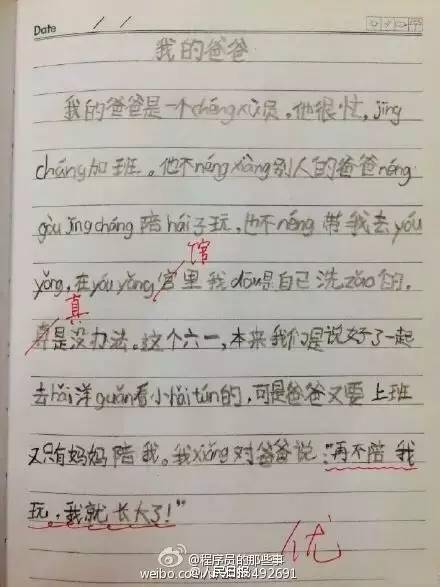 Date / /
我的爸爸
我的爸爸是一个chéng xù员。他很忙,jīng
cháng加班。他不néng xiàng别人的爸爸néng
gòu jīng cháng陪hái子玩,也不néng带我去yóu
馆
yǒng,在yóu yǒng官里我dōu是自己洗zǎo的。
真
是没办法。这个六一,本来我们是说好了一起
去hǎi洋guǎn看小hǎi tún的,可是爸爸又要上班
又只有妈妈陪我。我xiǎng对爸爸说:“再不陪我
玩,我就长大了!”
优
@程序员的那些事
weibo.com @人民日报 492691